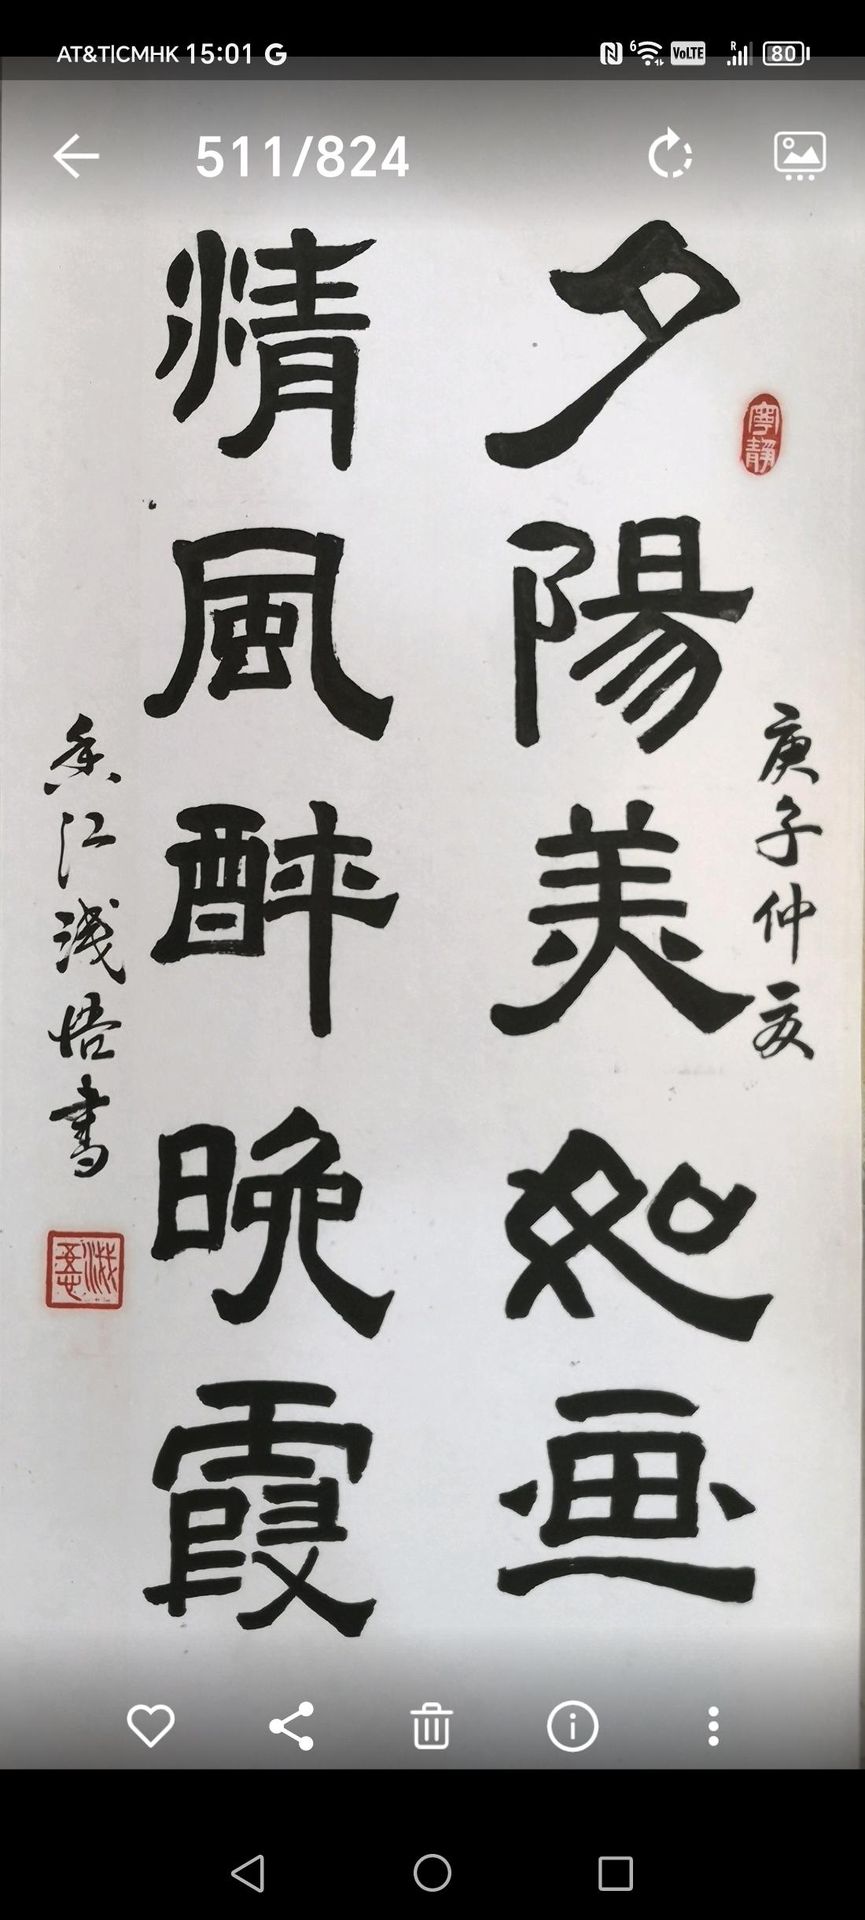 AT&T|CMHK 15:01 G
6 VoLTE R 80
511/824
寧靜
庚子仲夏
夕陽美如画
情風醉晚霞
香江浅悟書